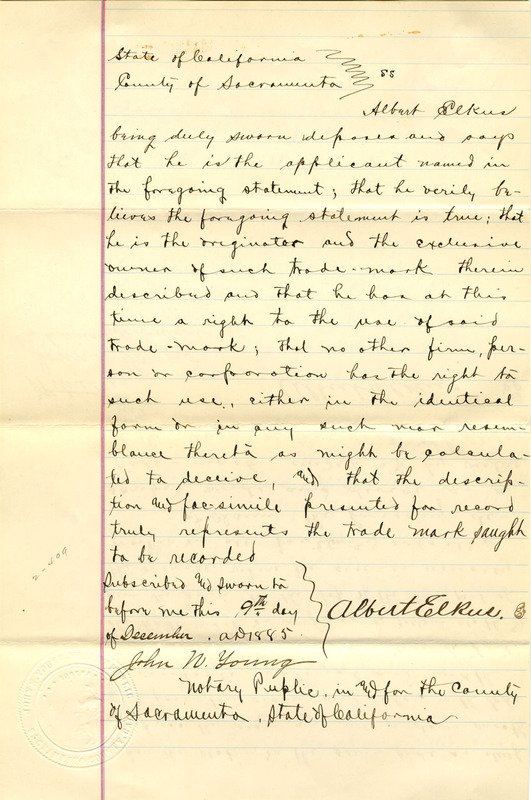 State of California
County of Sacramento ss
Albert Elkus
being duly sworn deposes and says
that he is the applicant named in
the foregoing statement; that he verily be-
lieves the foregoing statement is true; that
he is the originator and the exclusive
owner of such trade-mark therein
described and that he has at this
time a right to the use of said
trade-mark; that no other firm, per-
son or corporation has the right to
such use, either in the identical
form or in any such near resem-
blance thereto as might be calcula-
ted to deceive, and that the descrip-
tion and fac-simile presented for record
truly represents the trade mark saught
to be recorded
Subscribed and Sworn to
before me this 9th day
of December. AD 1885.
Albert Elkus.
John W. Young
Notary Public, in and for the County
of Sacramento, State of California
2-409